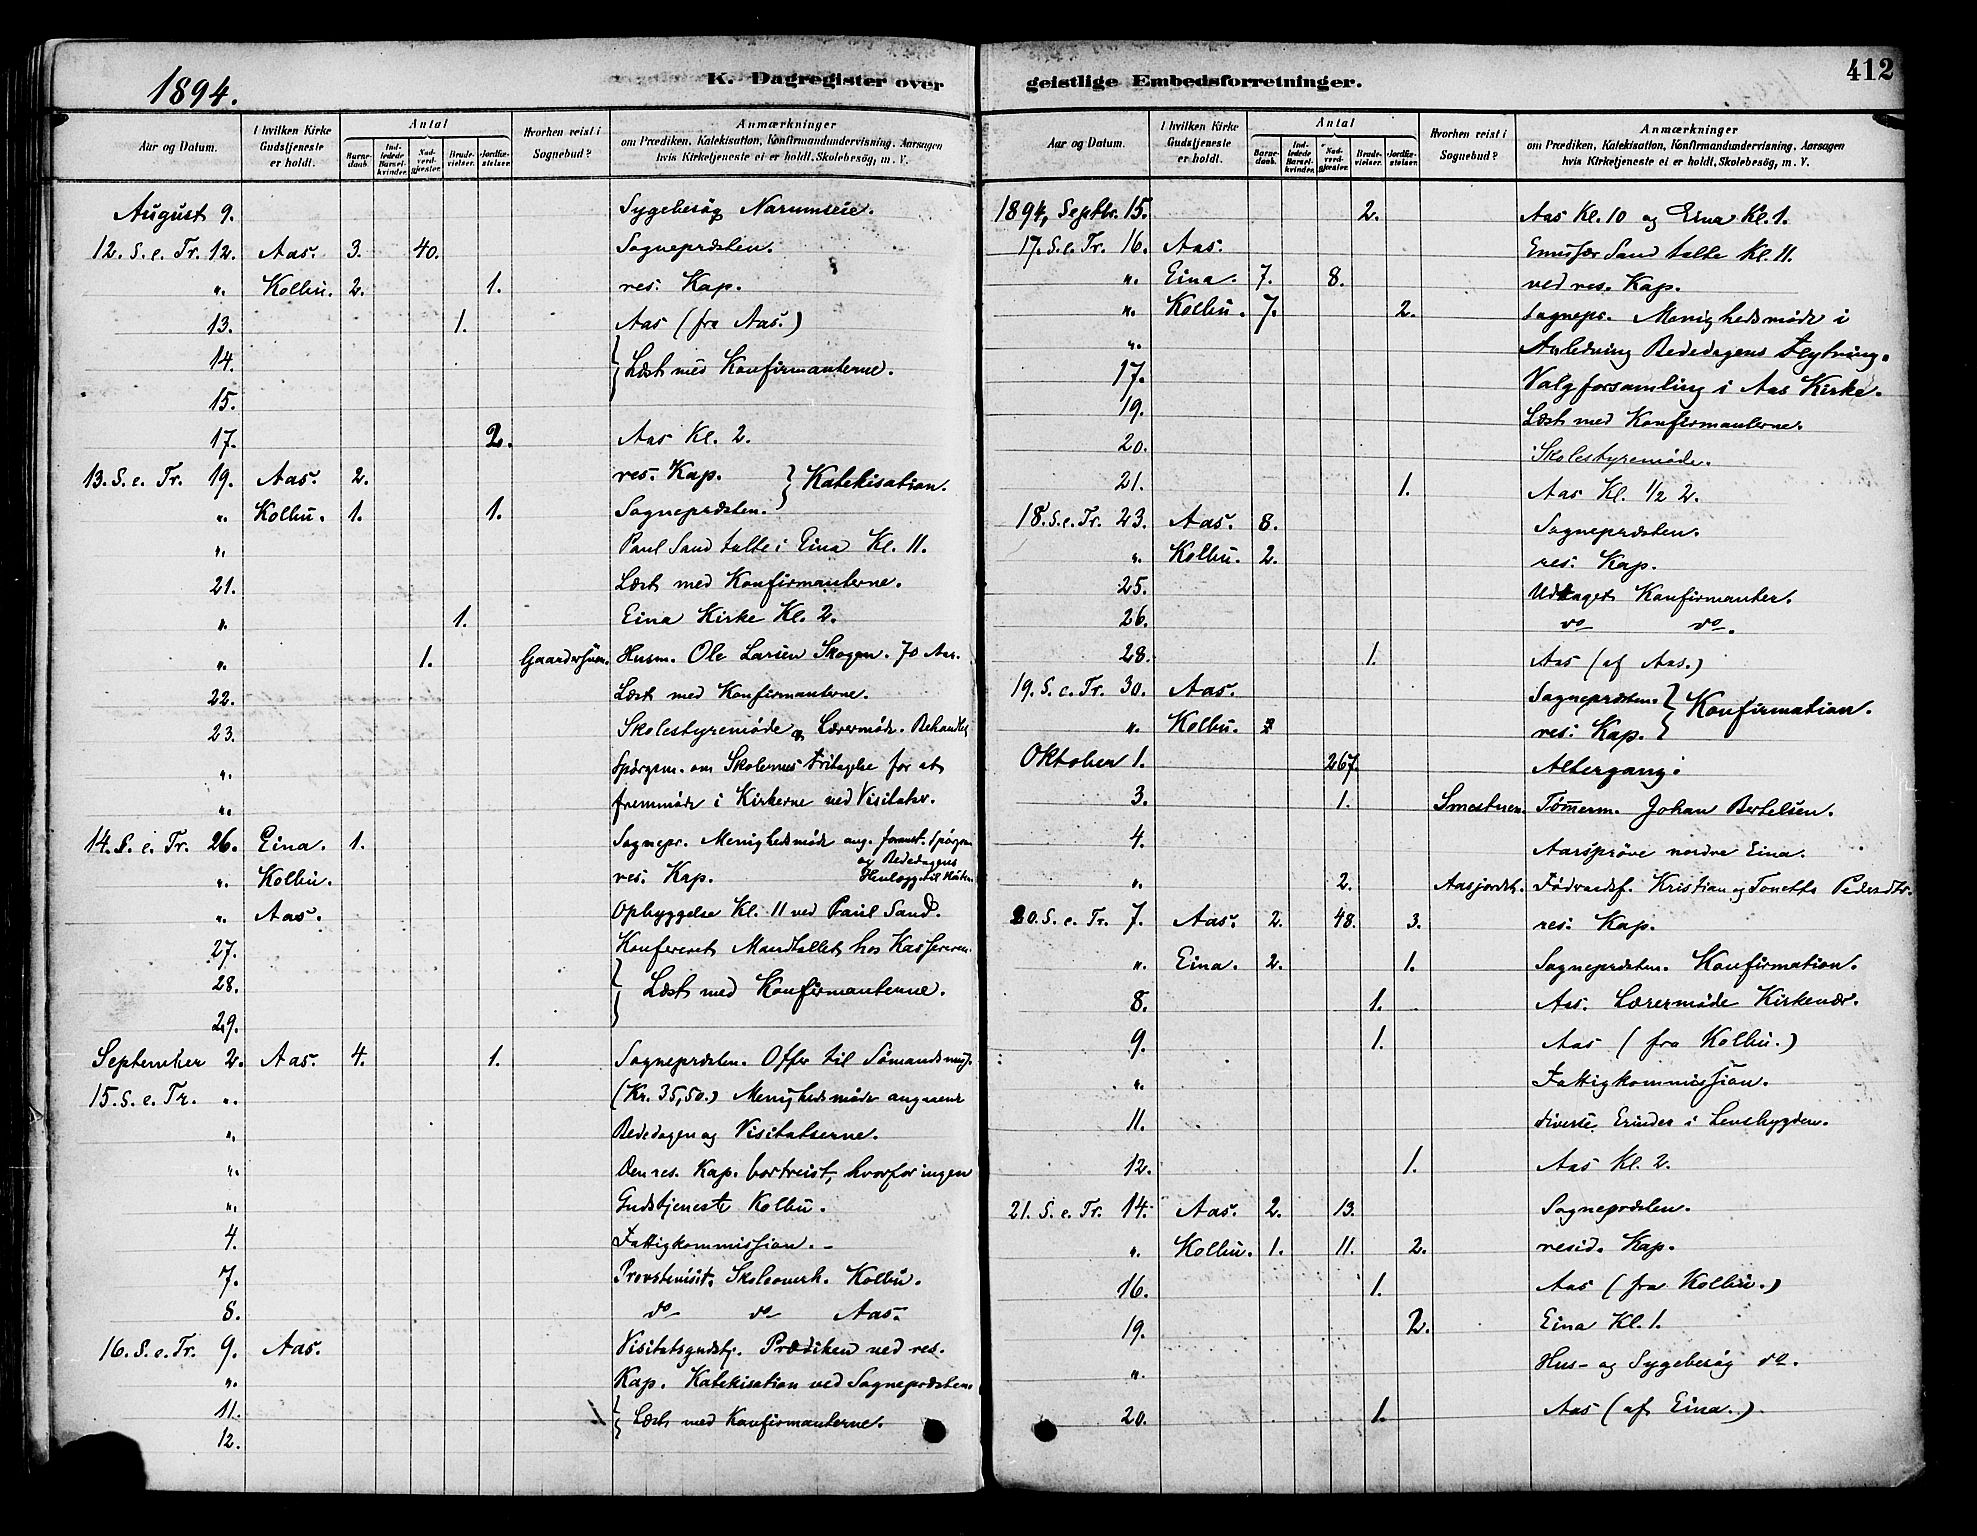 1894.
K. Dagregister over
Aar og Datum.
I hvilken Kirke Gudstjeneste er holdt.
Antal
Barnedaab.
Indledede Barselkvinder.
Nadverdgjæster.
Brudevielser.
Jordfæstelser.
Hvorhen reist i Sognebud?
Anmærkninger
om Prædiken, Katekisation, Konfirmandundervisning. Aarsagen
hvis Kirketjeneste ei er holdt, Skolebesøg, m. V.
August 9. Sygebesøg Narumseie.
12. S. e. Tr. 12. Aas. 3. 40. Sognepræsten.
". Kolbu. 2. 1. res. Kap.
13. 1. Aas (fra Aas.)
14. Læst med Konfirmanterne.
15.
17. 2. Aas Kl. 2.
13. S. e. Tr. 19. Aas. 2. res. Kap. } Katekisation.
". Kolbu. 1. 1. Sognepræsten.
". Paul Sand talte i Eina Kl. 11.
21. Læst med Konfirmanterne.
". 1. Eina Kirke Kl. 2.
". 1. Husm. Ole Larsen Skogen. 70 Aar.
22. Læst med Konfirmanterne.
23. Skolestyremøde og Lærermøde. Behandlet
". Spørgsm. om Skolernes Fritagelse for at
". fremmøde i Kirkerne ved Visitats.
14. S. e. Tr. 26. Eina. 1. Sognepr. Menighedsmøde ang. Spørgsm
og Bededagens
". Kolbu. res. Kap.
". Aas. Opbyggelse Kl. 11 ved Paul Sand.
27. Konfereret Mandtallet hos Kassereren.
28. Læst med Konfirmanterne.
29.
September 2. Aas. 4. 1. Sognepræsten. Offer til Sømandsmis.
15. S. e. Tr. ". (Kr. 35,50.) Menighedsmøde angaaende
". Bededagen og Visitatserne.
". Den res. Kap. bortreist, hvorfor ingen
". Gudstjeneste Kolbu.
4. Fattigkommission. -
7. Provstevisit. Skoleoverh. Kolbu.
8. do do Aas.
16. S. e. Tr. 9. Aas. Visitatsgudstj. Prædiken ved res.
". Kap. Katekisation ved Sognepræsten.
11. Læst med Konfirmanterne.
12.
geistlige Embedsforretninger.
412
Aar og Datum.
I hvilken Kirke Gudstjeneste er holdt.
Antal
Barnedaab.
Indledede Barselkvinder.
Nadverdgjæster.
Brudevielser.
Jordfæstelser.
Hvorhen reist i Sognebud?
Anmærkninger
om Prædiken, Katekisation, Konfirmandundervisning, Aarsagen
hvis Kirketjeneste ei er holdt, Skolebesøg, m. V.
1894, Septbr. 15. 2. Aas Kl. 10 og Eina Kl. 1.
17. S. e. Tr. 16. Aas. Emissær Sand talte Kl. 11.
". Eina. 7. 8. ved res. Kap.
". Kolbu. 7. 2. Sognepr. Menighedsmøde i
". Anledning Bededagens Flytning.
17. Valgforsamling i Aas Kirke.
19. Læst med Konfirmanterne.
20. Skolestyremøde.
21. 1. Aas Kl. 1/2 2.
18. S. e. Tr. 23. Aas. 8. Sognepræsten.
". Kolbu. 2. res. Kap.
25. Udtaget Konfirmanter.
26. do do.
28. 1. Aas (af Aas.)
19. S. e. Tr. 30. Aas. Sognepræsten. } Konfirmation.
". Kolbu. res. Kap.
Oktober 1. 267. Altergang.
3. 1. Smestuen. Tømmerm. Johan Bertelsen.
4. Aarsprøve nordre Eina.
". 2. Kristian og Tonetta
20. S. e. Tr. 7. Aas. 2. 48. 3. res. Kap.
". Eina. 2. 1. Sognepræsten. Konfirmation.
8. 1. Aas. Lærermøde Kirkenær.
9. 1. Aas (fra Kolbu.)
". Fattigkommission.
11. diverse Erinder i Lensbygden.
12. 1. Aas Kl. 2.
21. S. e. Tr. 14. Aas. 2. 13. Sognepræsten.
". Kolbu. 1. 11. 2. resid. Kap.
16. 1. Aas (fra Kolbu.)
19. 2. Eina Kl. 1.
". Hus- og Sygebesøg do.
20. 1. Aas (af Eina.)